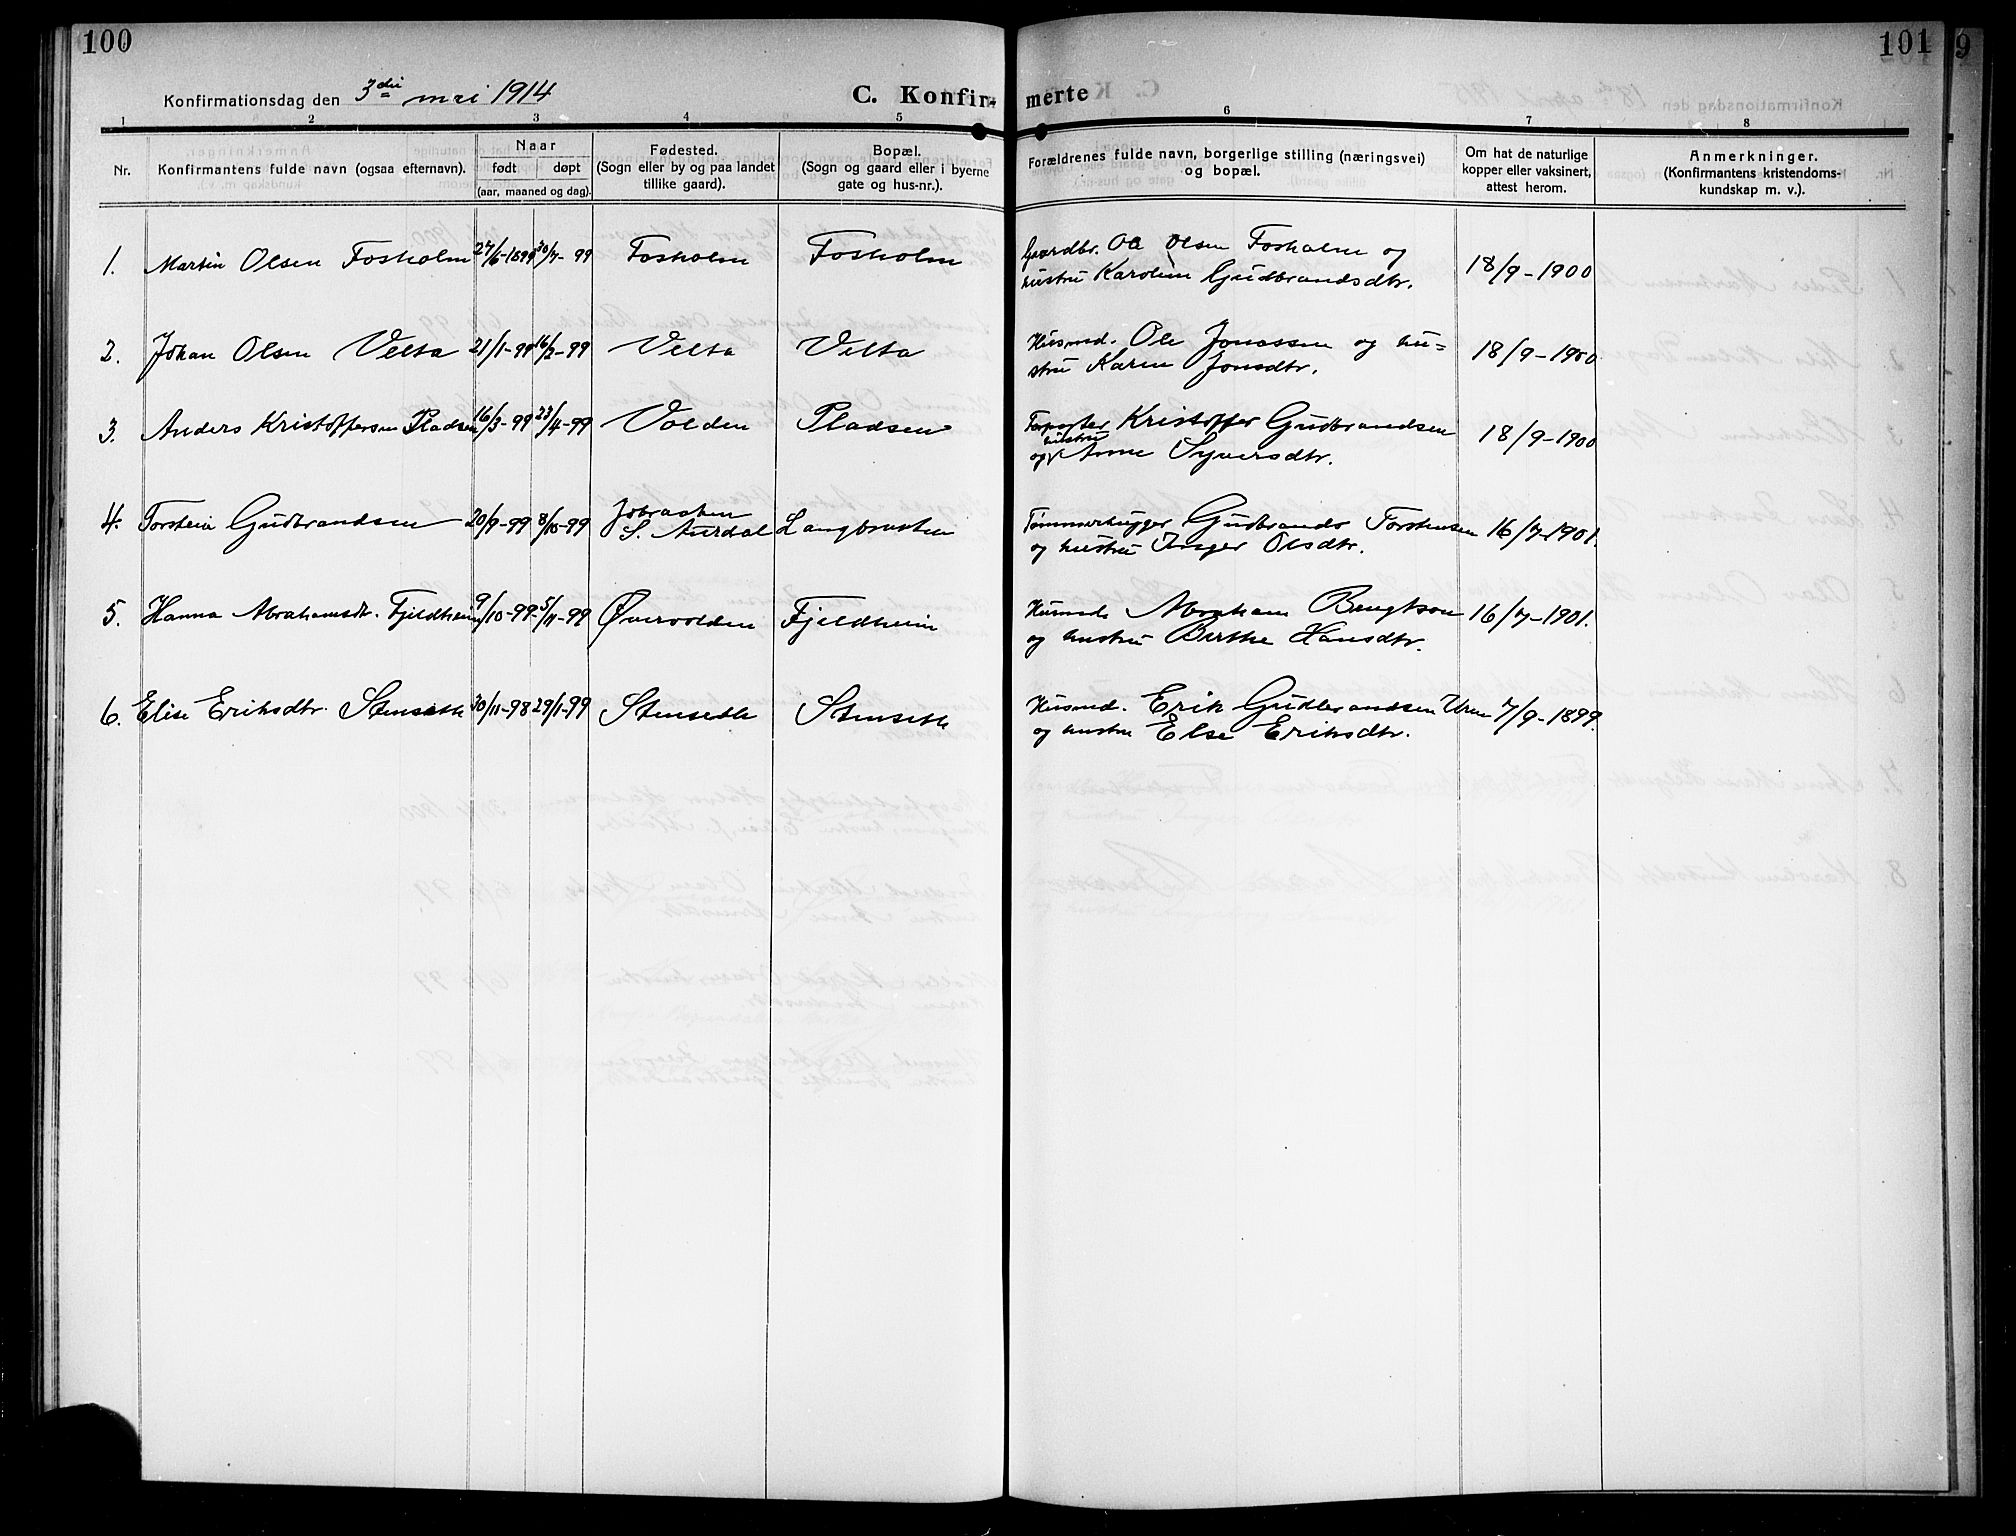 100
Konfirmationsdag den 3die mai 1914
C. Konfir-
1 2 3 4 5
Nr.
Konfirmantens fulde navn (ogsaa efternavn).
Naar
født døpt
(aar, maaned og dag).
Fødested.
(Sogn eller by og paa landet
tillike gaard).
Bopæl.
(Sogn og gaard eller i byerne
gate og hus-nr.).
1. Martin Olsen Fosholm 27/6-1899 30/7-99 Fosholm Fosholm
2. Johan Olsen Velta 21/1-99 16/2-99 Velta Velta
3. Anders Kristoffersen Pladsen 16/3-99 23/4-99 Volden Pladsen
4. Torstein Gudbrandsen 20/9-99 8/10-99 Jobraaten
S. Aurdal Langbraaten
5. Hanna Abrahamsdt. Fjeldheim 9/10-99 5/11-99 Øvervolden Fjeldheim
6. Elise Eriksdtr. Stenseth 30/11-98 29/1-99 Stenseth Stenseth
101
merte
6 7 8
Forældrenes fulde navn, borgerlige stilling (næringsvei)
og bopæl.
Om hat de naturlige
kopper eller vaksinert,
attest herom.
Anmerkninger.
(Konfirmantens kristendoms-
kundskap m. v.).
Gaardbr. Ole Olsen Fosholm og
hustru Karoline Gudbrandsdtr. 18/9-1900
Husmd. Ole Jonassen og hu=
stru Karen Jonsdtr. 18/9-1900
Kristoffer Gudbrandsen
og hustru Anne Syversdtr. 18/9-1900
Tømmerhugger Gudbrands Torstensen
og hustru Inger Olsdtr. 16/7-1901.
Husmd. Abraham Bengtson
og hustru Berthe Hansdtr. 16/7-1901.
Husmd. Erik Gudbrandsen Uren
og hustru Else Eriksdtr. 7/9-1899.
9